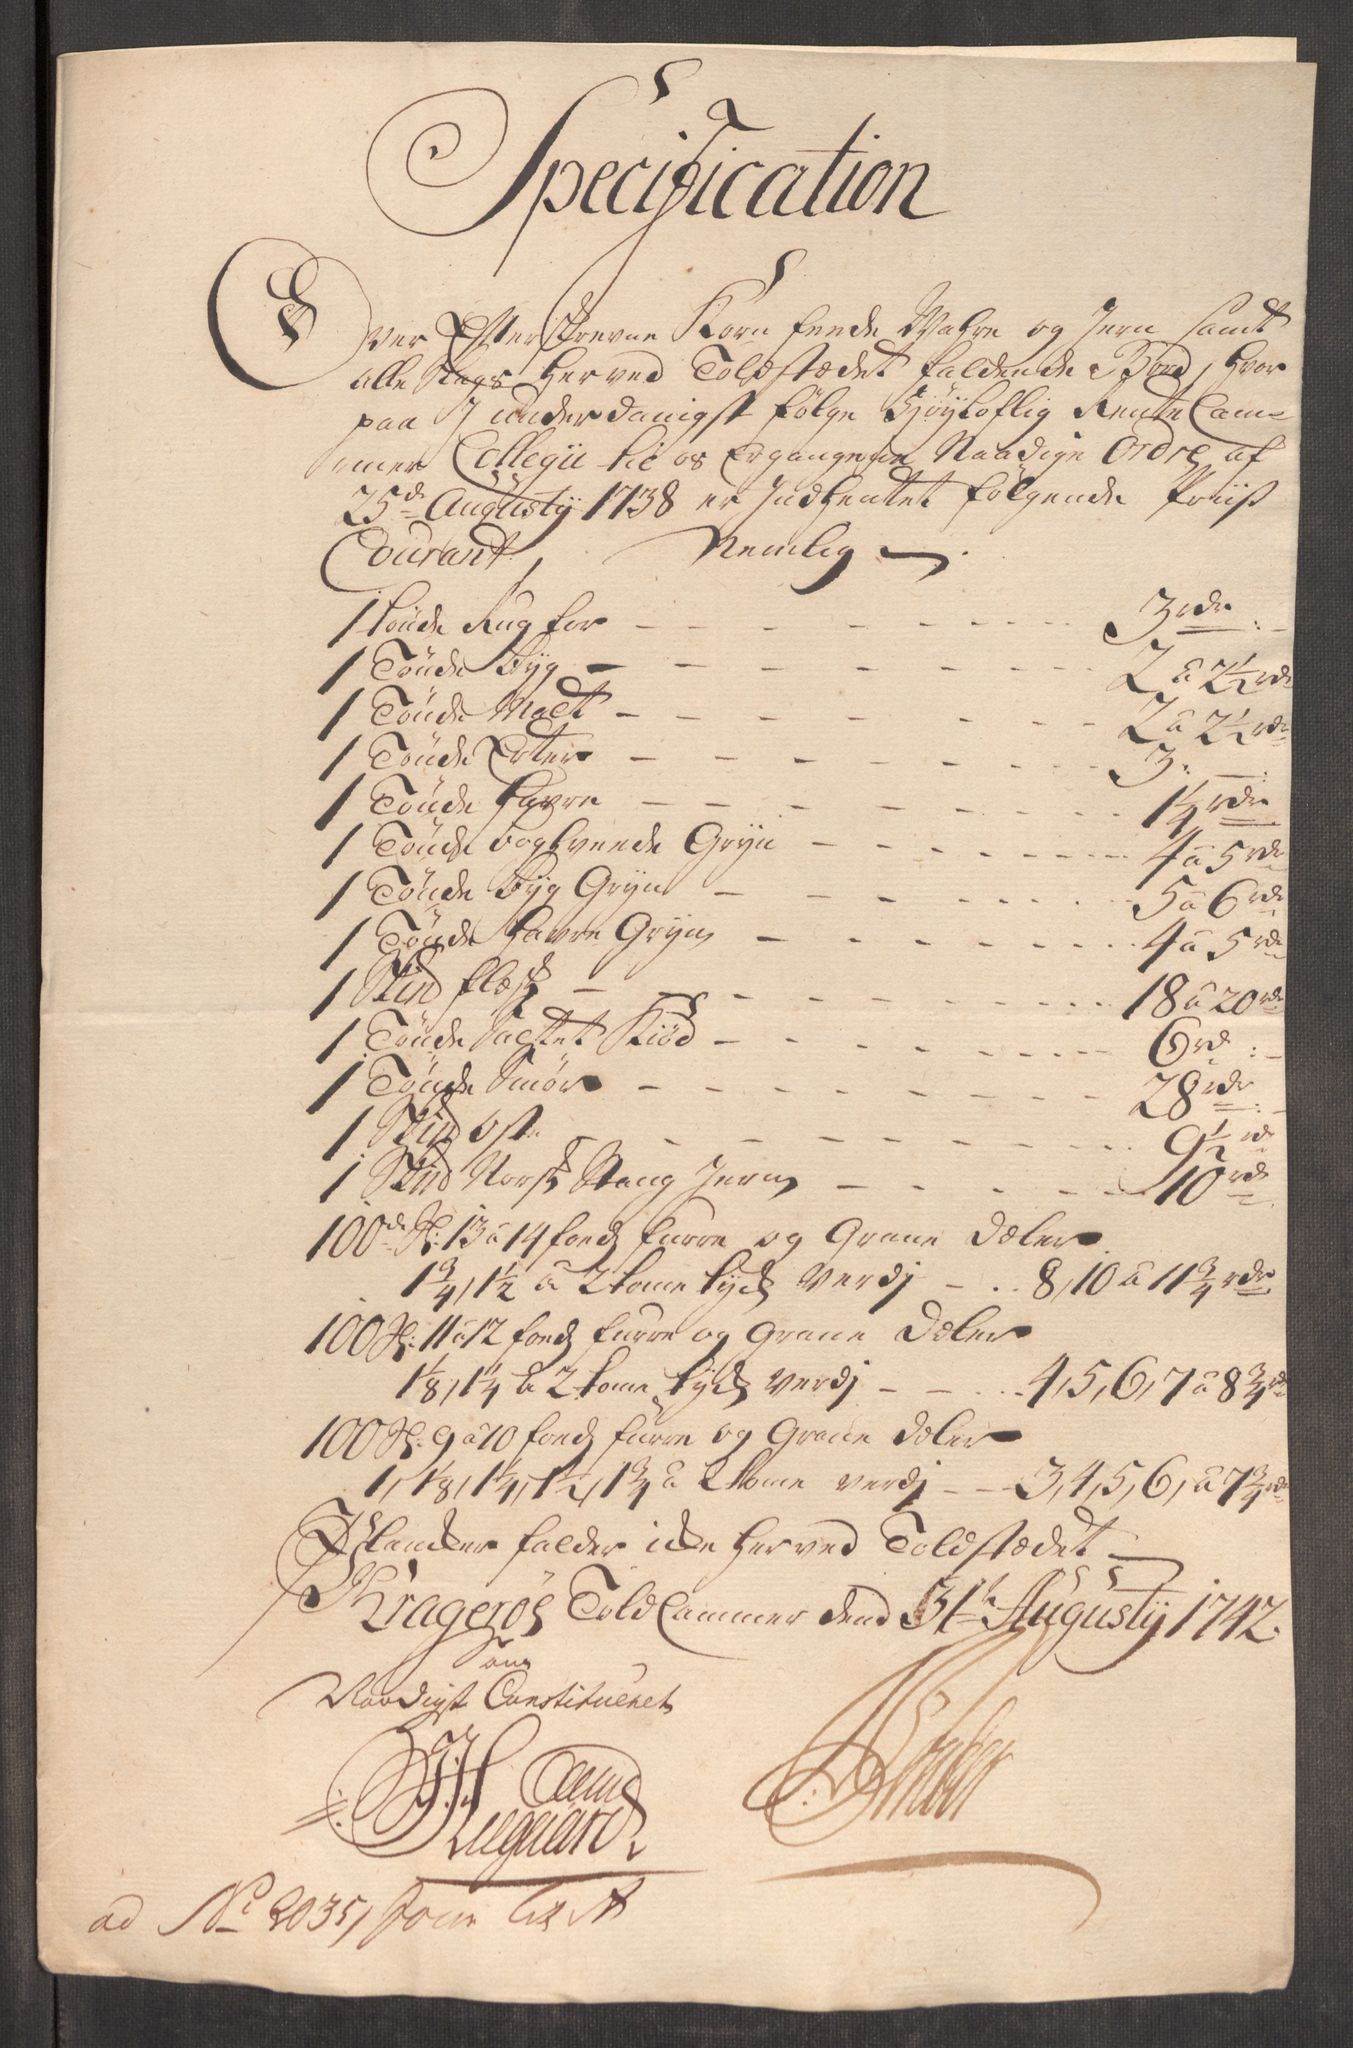 Specification
Over Efterskrevne Korn feede Wahre og Jern samt
alle slags Her ved Toldstædet faldende Bord, hvor
paa I underdanigst følge Høyloflig Rente Cam=
mer Collegii til os Ergangene Naadige Ordre af
25de Augusty 1738 er Indhentet følgende Priis
Courant, Nemlig
1 tønde Rug for - - - 3 rdr
1 Tønde byg - - - 2 a 2½ rdr
1 Tønde Malt - - - 2 a 2½ rdr
1 Tønde Erter - - - 3 : -
1 Tønde havre - - - 1¼ rdr
1 Tønde boghvende Gryn - - - 4 a 5 rdr
1 Tønde byg Gryn - - - 5 a 6 rdr
1 Tønde havre Gryn - - - 4 a 5 rdr
1 Skud flæsk - - - 18 a 20 rdr
1 Tønde Saltet Kiød - - - 6 rd : -
1 Tønde Smør - - - 28 rdr : -
1 Skud ost - - - 9½ rd
1 Skud Norsk Stang Jern - - - 10 rdr
100de St: 13 a 14 fods furre og Grane Dæler
1¾, 1½ a 2 tome tyck Verdj - - 8, 10 a 11¾ rdr
100 St: 11 a 12 fods furre og Grane Dæler
1⅛, 1¼ a 2 tome tyck verdj - - 4, 5, 6, 7 a 8¾ rdr
100 St: 9 a 10 fods furre og Grane dæler
1, 1⅛, 1¼, 1½, 1¾ a 2 tome verdj - - 3, 4, 5, 6, a 7¾ rdr
Plancker falder icke her ved Toldstædet
Kragerøes Told Cammer dend 31te Augusty 1742.
Som
Naadigst Constitueret
ad No 2035